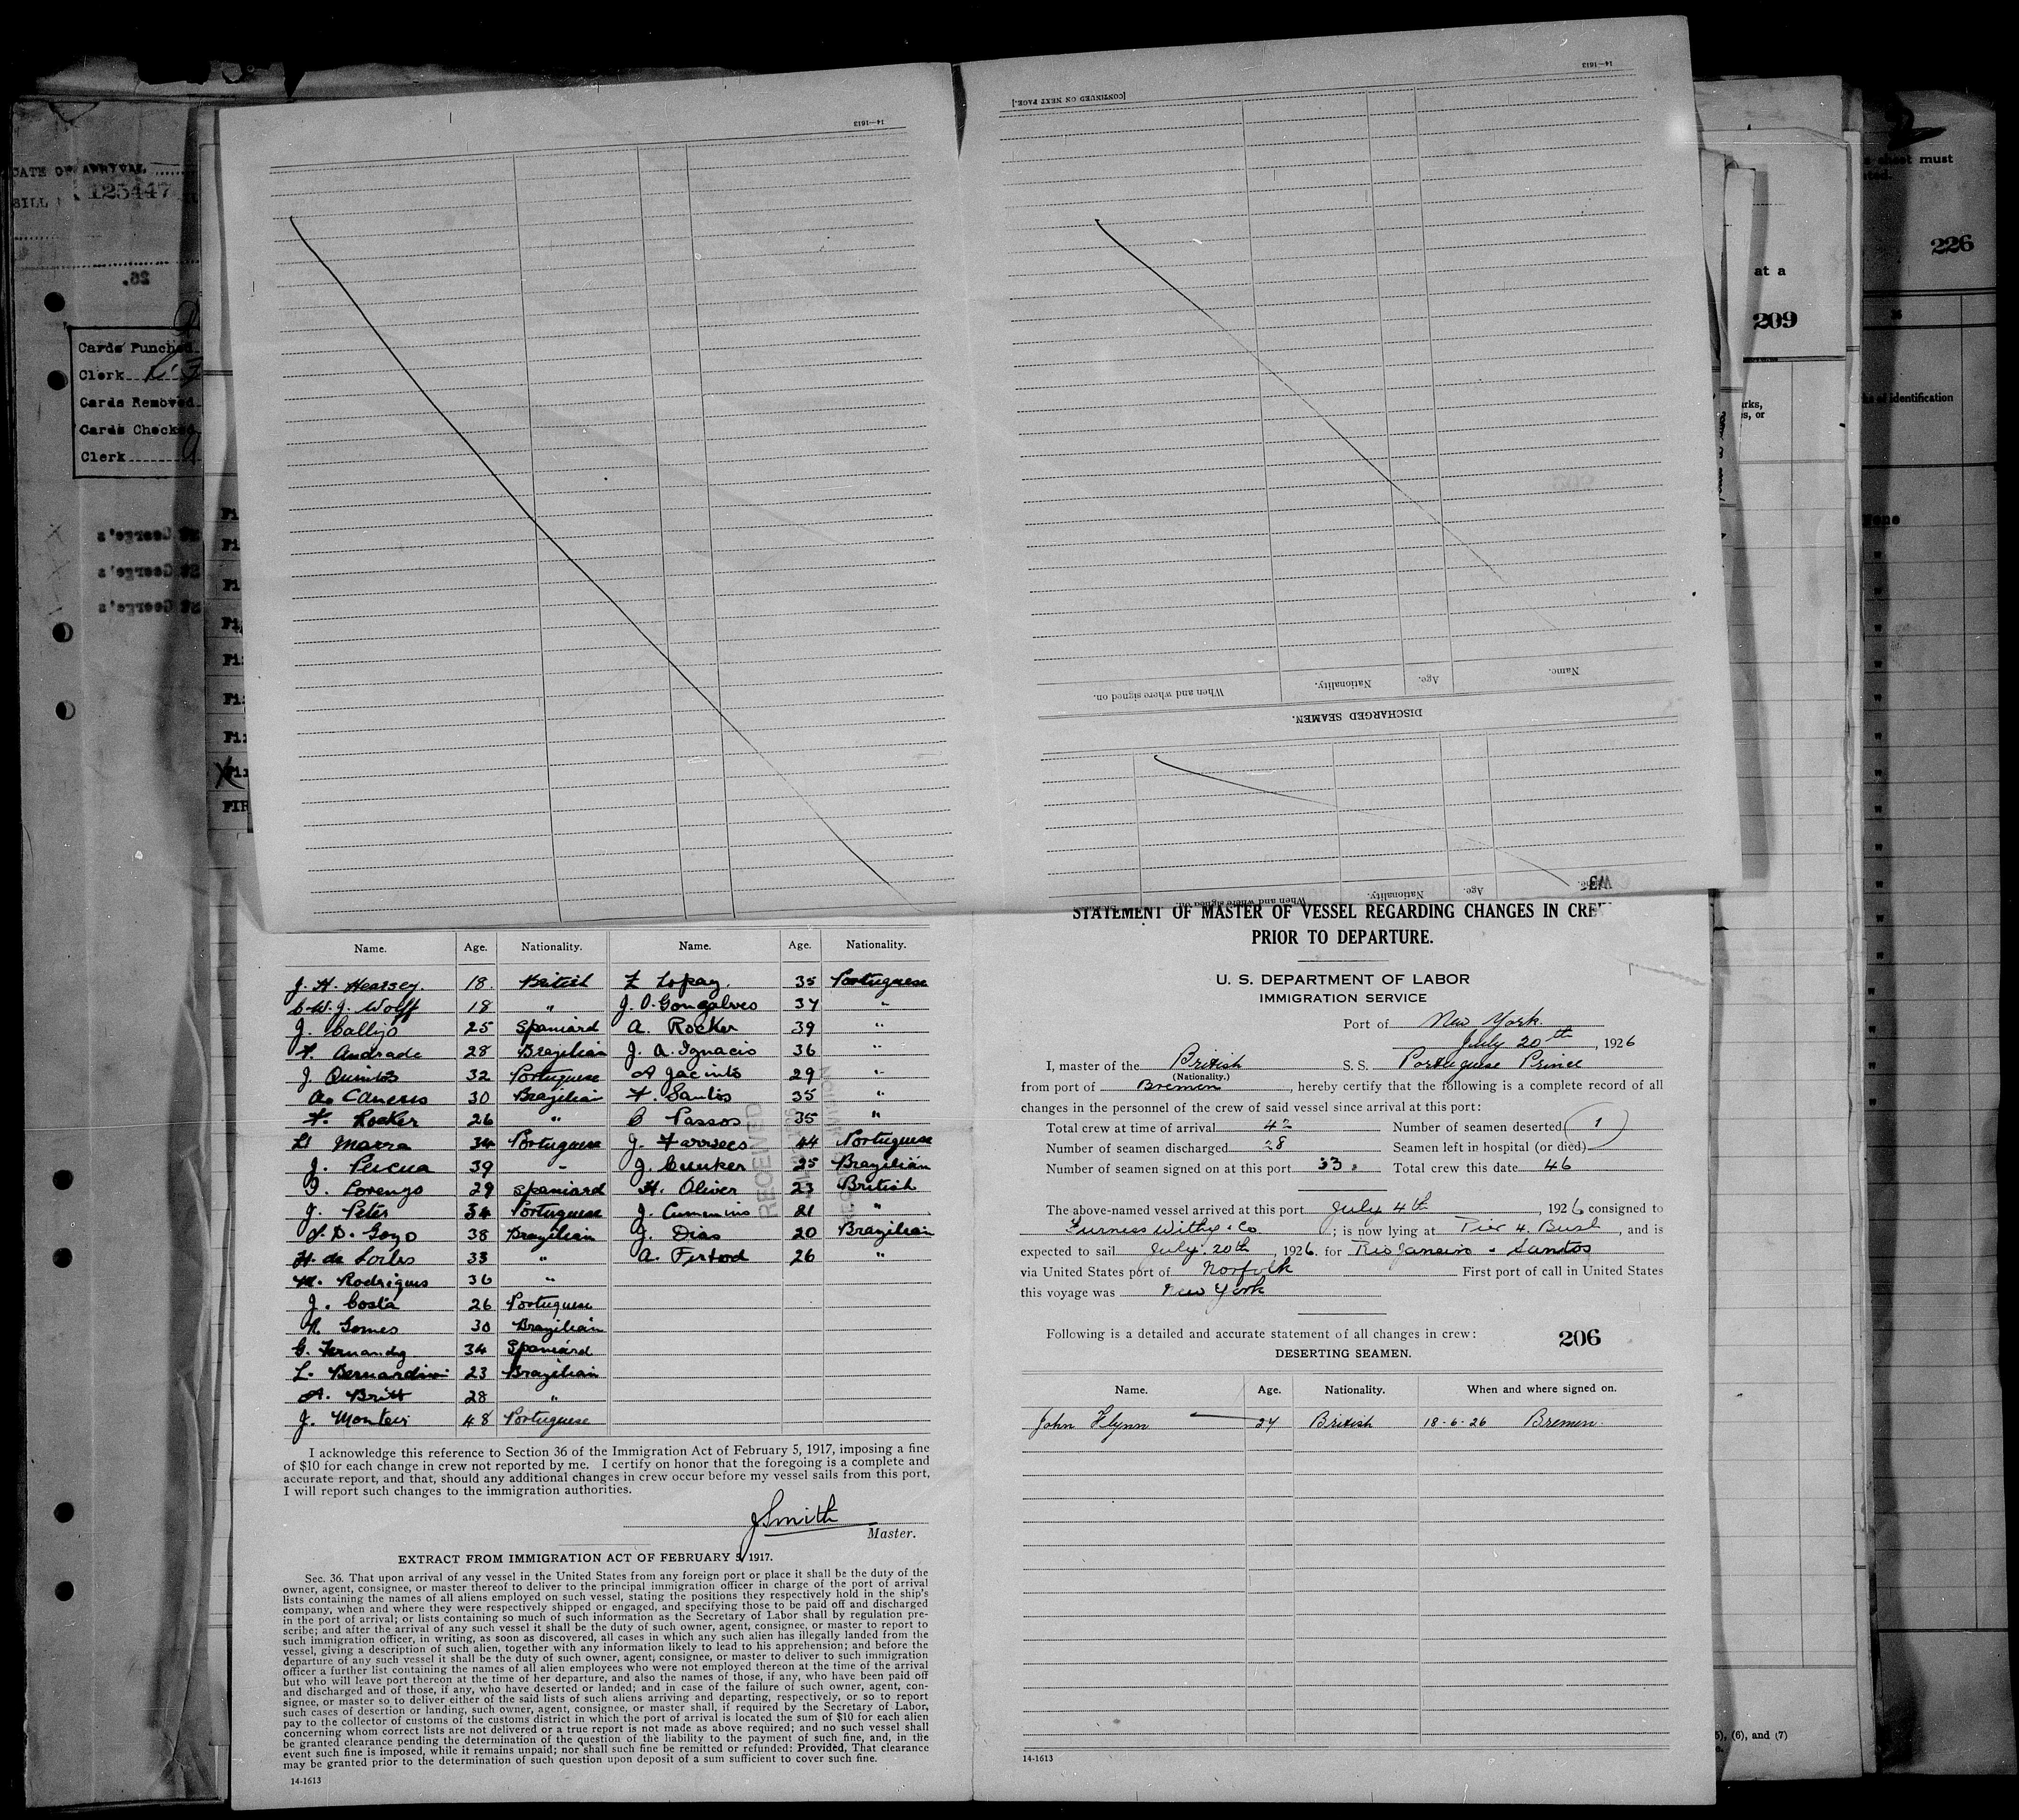 DATE OF ARRIVAL
125447
Cards Punched
Clerk
Cards Removed
Cards Checked
Clerk
St George's
St George's
St George's
14—1613
[CONTINUED ON NEXT PAGE.]
14—1613
Name. Age. Nationality. When and where signed on.
DISCHARGED SEAMEN.
Name. Age. Nationality. When and where signed on.
sheet must
226
at a
209
36
arks,
s, or
ks of identification
None
Name. Age. Nationality. Name. Age. Nationality.
J. H. Hearsey. 18. British Z Lopay. 35 Portuguese
C. W. J. Wolff 18 " J. O. Gonçalves 37 "
J. Callejo 25 Spaniard A. Rocker 39 "
Andrade 28 Brazilian J. A. Ignacio 36 "
J. Quintos 32 Portuguese A Jacinto 29 "
30 Brazilian F. Santos 35 "
F. Rocker 26 " C Passos 35 "
Marra 34 Portuguese J. 44 Portuguese
J. 39 " J. Cunker 25 Brazilian
Lorenzo 29 Spaniard H. Oliver 23 British
J. Peter 34 Portuguese J. Cummins 21 "
38 Brazilian J. Dias 20 Brazilian
33 " A. 26 "
M. Rodrigues 36 "
J. Costa 26 Portuguese
Gomes 30 Brazilian
G. Fernandez 34 Spaniard
L. Bernardino 23 Brazilian
A. Britt 28 "
J. 48 Portuguese
RECEIVED
I acknowledge this reference to Section 36 of the Immigration Act of February 5, 1917, imposing a fine
of $10 for each change in crew not reported by me. I certify on honor that the foregoing is a complete and
accurate report, and that, should any additional changes in crew occur before my vessel sails from this port,
I will report such changes to the immigration authorities.
J Smith
Master.
EXTRACT FROM IMMIGRATION ACT OF FEBRUARY 5, 1917.
Sec. 36. That upon arrival of any vessel in the United States from any foreign port or place it shall be the duty of the
owner, agent, consignee, or master thereof to deliver to the principal immigration officer in charge of the port of arrival
lists containing the names of all aliens employed on such vessel, stating the positions they respectively hold in the ship's
company, when and where they were respectively shipped or engaged, and specifying those to be paid off and discharged
in the port of arrival; or lists containing so much of such information as the Secretary of Labor shall by regulation pre-
scribe; and after the arrival of any such vessel it shall be the duty of such owner, agent, consignee, or master to report to
such immigration officer, in writing, as soon as discovered, all cases in which any such alien has illegally landed from the
vessel, giving a description of such alien, together with any information likely to lead to his apprehension; and before the
departure of any such vessel it shall be the duty of such owner, agent, consignee, or master to deliver to such immigration
officer a further list containing the names of all alien employees who were not employed thereon at the time of the arrival
but who will leave port thereon at the time of her departure, and also the names of those, if any, who have been paid off
and discharged and of those, if any, who have deserted or landed; and in case of the failure of such owner, agent, con-
signee, or master so to deliver either of the said lists of such aliens arriving and departing, respectively, or so to report
such cases of desertion or landing, such owner, agent, consignee, or master shall, if required by the Secretary of Labor,
pay to the collector of customs of the customs district in which the port of arrival is located the sum of $10 for each alien
concerning whom correct lists are not delivered or a true report is not made as above required; and no such vessel shall
be granted clearance pending the determination of the question of the liability to the payment of such fine, and, in the
event such fine is imposed, while it remains unpaid; nor shall such fine be remitted or refunded: Provided, That clearance
may be granted prior to the determination of such question upon deposit of a sum sufficient to cover such fine.
14-1613
STATEMENT OF MASTER OF VESSEL REGARDING CHANGES IN CREW
PRIOR TO DEPARTURE.
U. S. DEPARTMENT OF LABOR
IMMIGRATION SERVICE
Port of New York
July 20th, 1926
I, master of the British S. S. Portuguese Prince
(Nationality.)
from port of Bremen, hereby certify that the following is a complete record of all
changes in the personnel of the crew of said vessel since arrival at this port:
Total crew at time of arrival 42 Number of seamen deserted 1
Number of seamen discharged 28 Seamen left in hospital (or died)
Number of seamen signed on at this port 33. Total crew this date 46
The above-named vessel arrived at this port July 4th, 1926 consigned to
Furness Withy & Co; is now lying at Pier 4. Bush, and is
expected to sail July. 20th, 1926. for Rio Janeiro & Santos
via United States port of Norfolk First port of call in United States
this voyage was New York
Following is a detailed and accurate statement of all changes in crew:
206
DESERTING SEAMEN.
Name. Age. Nationality. When and where signed on.
John Flynn 24 British 18-6-26 Bremen.
14-1613
5), (6), and (7)